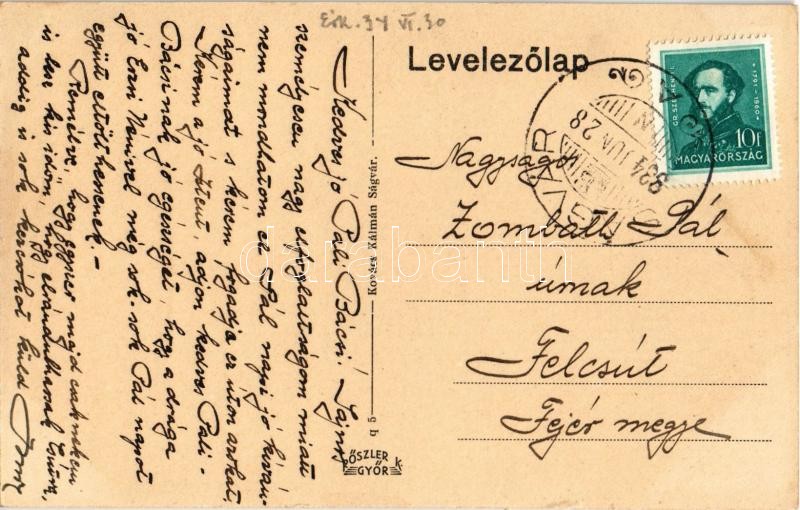 Érk. 34 VI. 30
Levelezőlap
GR. SZÉCHENYI I. 1791-1860
10f
MAGYARORSZÁG
SÁGVÁR
934 JUN 28
Nagyságos
Zombath Pál
úrnak
Felcsút
Fejér megye
Kedves jó Pali Bácsi! Sajnos
személyesen nagy elfoglaltságom miatt
nem mondhatom el Pál napi jó kíván-
ságaimat s kérem fogadja ez úton azokat,
Kérem a jó Istent, adjon kedves Pali-
Bácsinak jó egészséget, hogy a drága
jó Erzsi Nénivel még sok-sok Pál napot
együtt eltölthessenek. –
Remélve, hogy egyszer majd csak nekem
is lesz kis időm, hogy elrándulhassak
addig is sok kézcsókot küld
q 5
Kovács Kálmán Ságvár.
ŐSZLER
GYŐR
darabanth